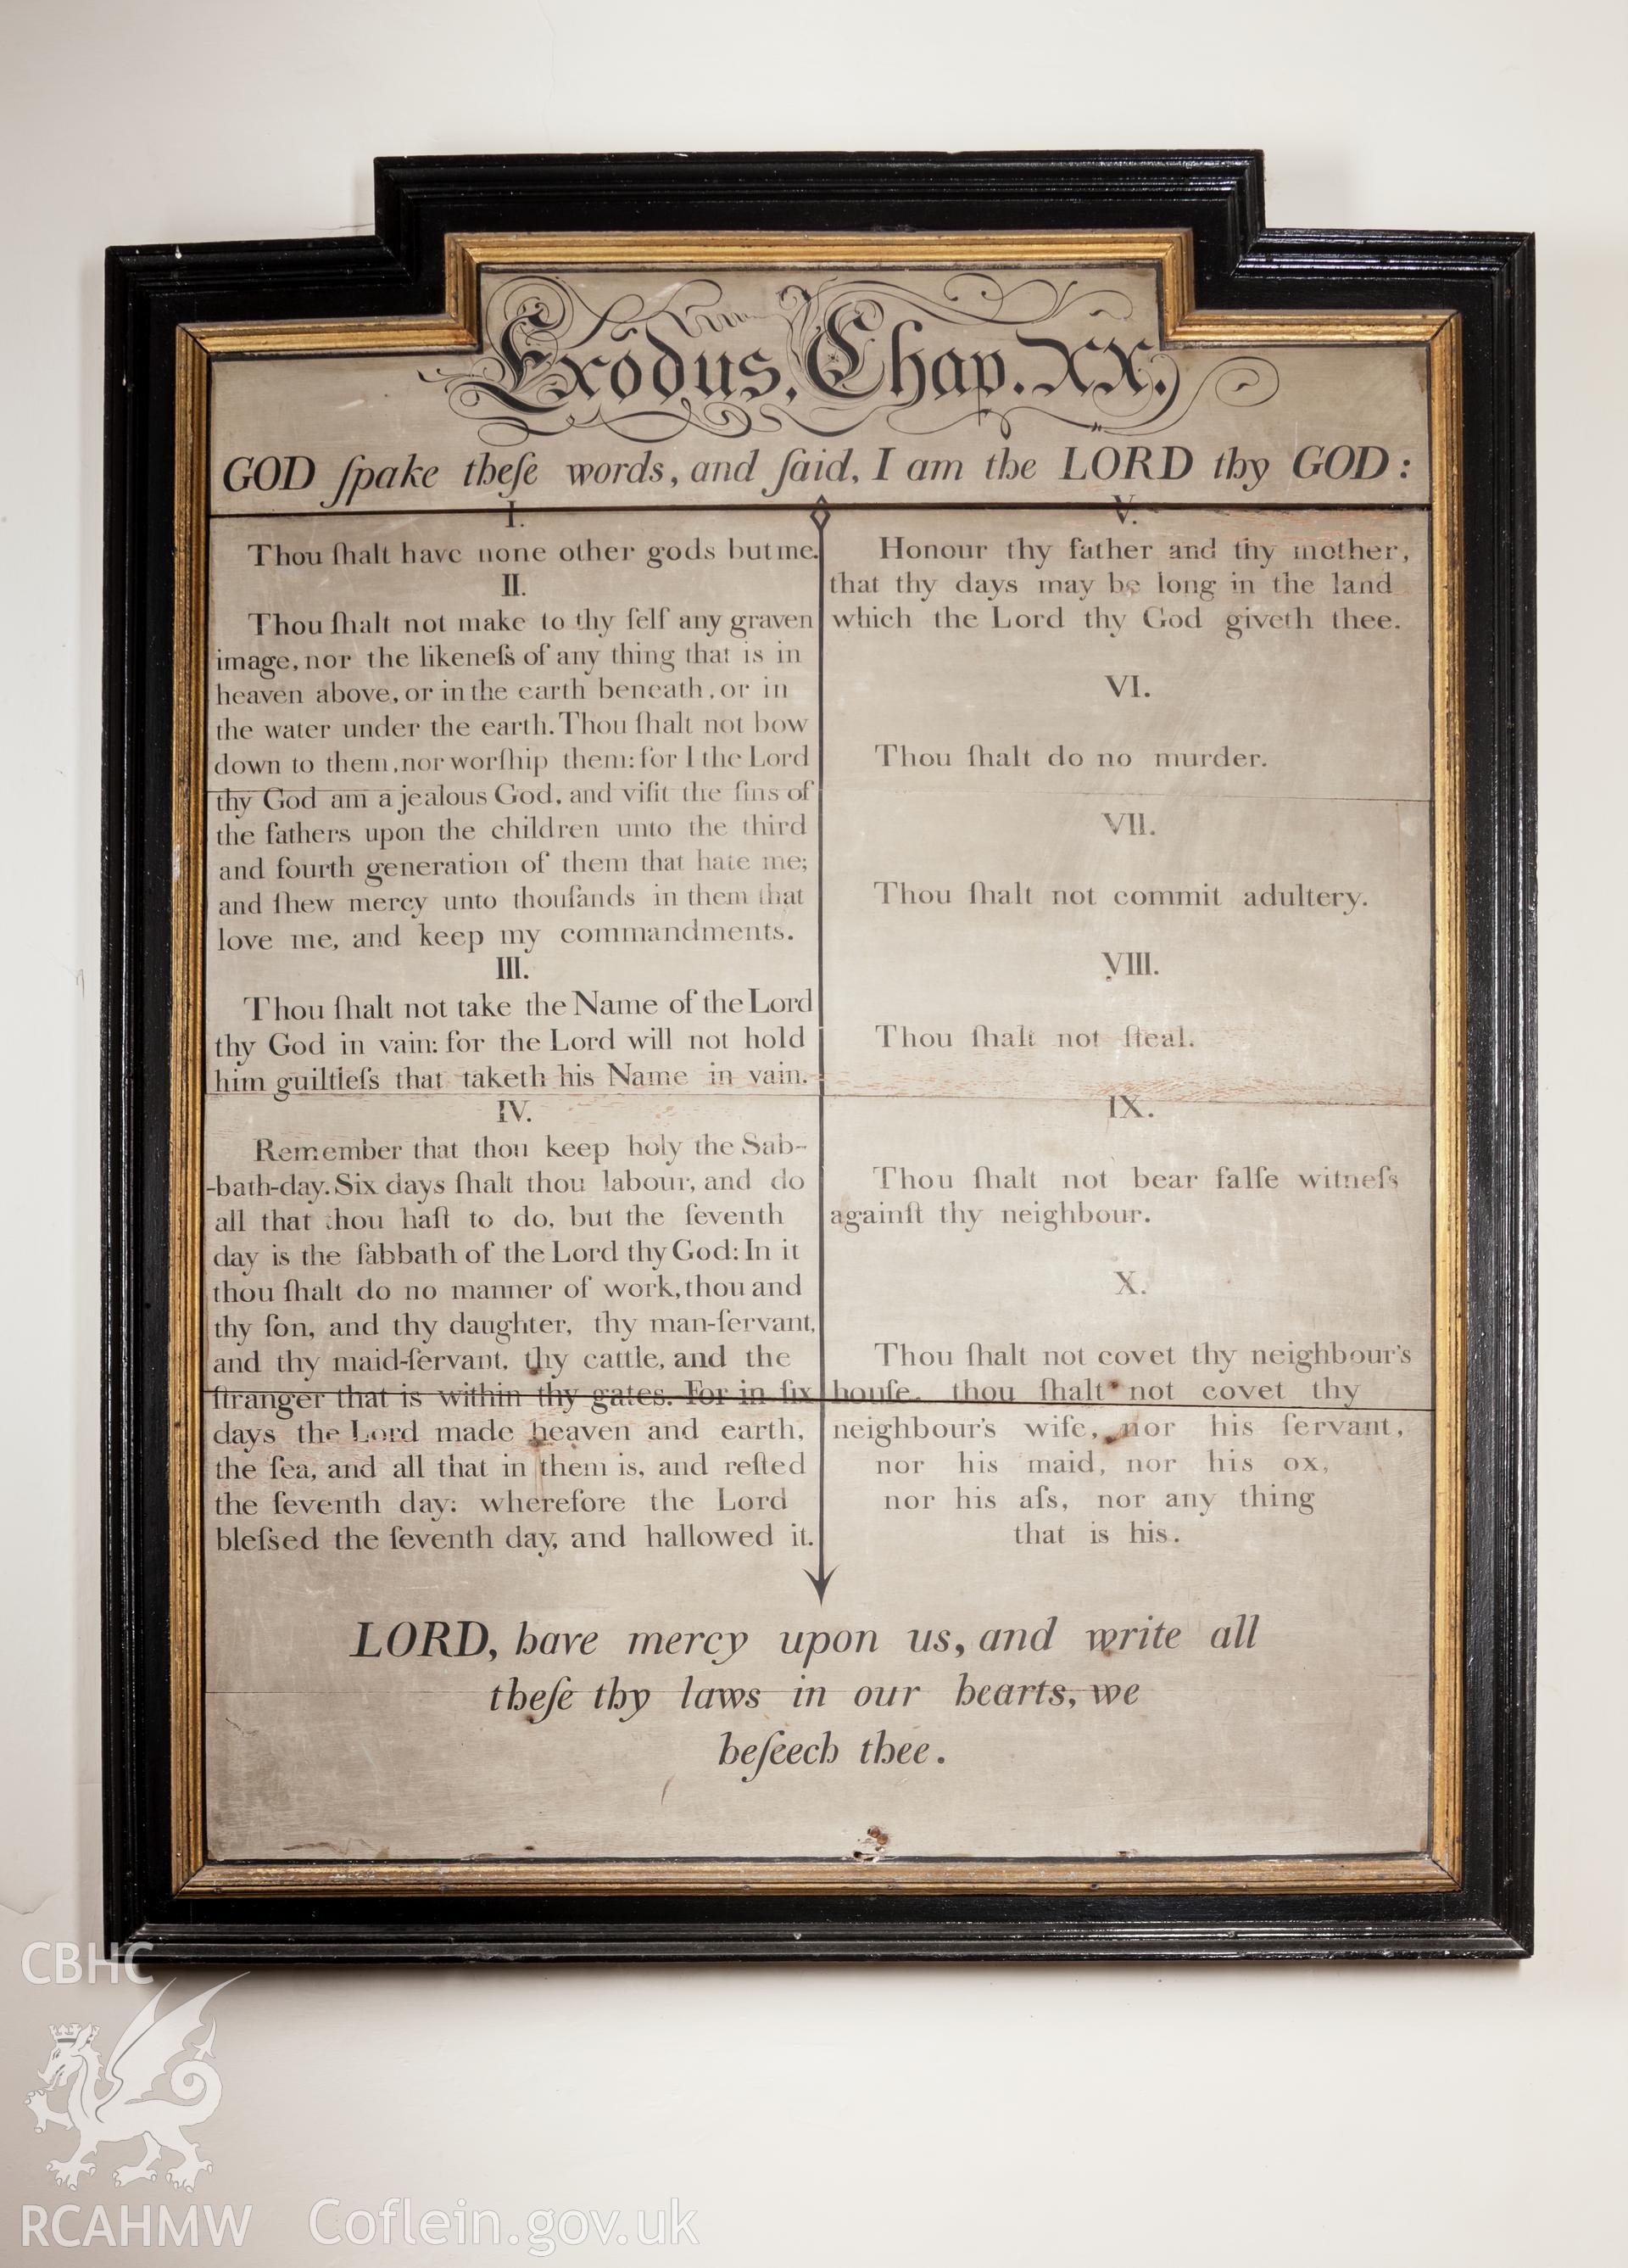 Exodus, Chap. XX.
GOD ſpake theſe words, and ſaid, I am the LORD thy GOD:
I.
Thou ſhalt have none other gods but me.
II.
Thou ſhalt not make to thy ſelf any graven
image, nor the likeneſs of any thing that is in
heaven above, or in the earth beneath, or in
the water under the earth. Thou ſhalt not bow
down to them, nor worſhip them: for I the Lord
thy God am a jealous God, and viſit the ſins of
the fathers upon the children unto the third
and fourth generation of them that hate me;
and ſhew mercy unto thouſands in them that
love me, and keep my commandments.
III.
Thou ſhalt not take the Name of the Lord
thy God in vain: for the Lord will not hold
him guiltleſs that taketh his Name in vain.
IV.
Remember that thou keep holy the Sab-
-bath-day. Six days ſhalt thou labour, and do
all that thou haſt to do, but the ſeventh
day is the ſabbath of the Lord thy God: In it
thou ſhalt do no manner of work, thou and
thy ſon, and thy daughter, thy man-ſervant,
and thy maid-ſervant, thy cattle, and the
ſtranger that is within thy gates. For in ſix
days the Lord made heaven and earth,
the ſea, and all that in them is, and reſted
the ſeventh day: wherefore the Lord
bleſsed the ſeventh day, and hallowed it.
V.
Honour thy father and thy mother,
that thy days may be long in the land
which the Lord thy God giveth thee.
VI.
Thou ſhalt do no murder.
VII.
Thou ſhalt not commit adultery.
VIII.
Thou ſhalt not ſteal.
IX.
Thou ſhalt not bear falſe witneſs
againſt thy neighbour.
X.
Thou ſhalt not covet thy neighbour's
houſe, thou ſhalt not covet thy
neighbour's wife, nor his ſervant,
nor his maid, nor his ox,
nor his aſs, nor any thing
that is his.
LORD, have mercy upon us, and write all
theſe thy laws in our hearts, we
beſeech thee.
CBHC
RCAHMW Coflein.gov.uk